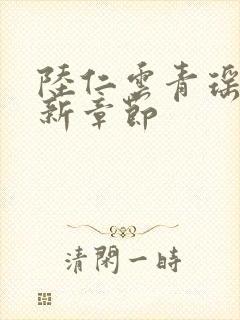 陸仁雲青瑤
新章節
清閑一時